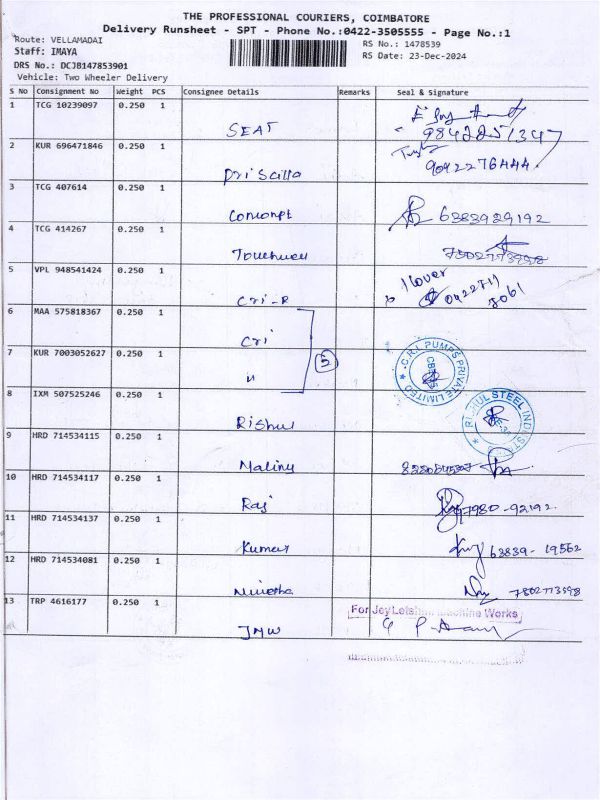 THE PROFESSIONAL COURIERS, COIMBATORE
Delivery Runsheet - SPT - Phone No.:0422-3505555 - Page No.:1
Route: VELLAMADAI
RS No.: 1478539
Staff: IMAYA
RS Date: 23-Dec-2024
DRS No.: DCJB147853901
Vehicle: Two Wheeler Delivery
S No Consignment No Weight PCS Consignee Details Remarks Seal & Signature
1 TCG 10239097 0.250 1 SEAT 9842251347
2 KUR 696471846 0.250 1 Priscilla 9092276444
3 TCG 407614 0.250 1 6383929192
4 TCG 414267 0.250 1
5 VPL 948541424 0.250 1 Cri-R
6 MAA 575818367 0.250 1 Cri
7 KUR 7003052627 0.250 1 "
C.R.I. PUMPS PRIVATE LIMITED
8 IXM 507525246 0.250 1
9 HRD 714534115 0.250 1 Maliny
10 HRD 714534117 0.250 1 Raj 97980-92192
11 HRD 714534137 0.250 1 Kumar 63839-19562
12 HRD 714534081 0.250 1
13 TRP 4616177 0.250 1 JMW
Works